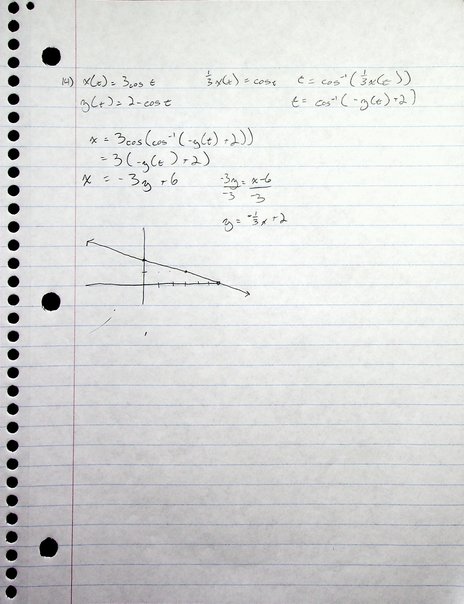 14) x(t) = 3cos t    ⅓x(t) = cos t    t = cos⁻¹(⅓x(t))
y(t) = 2 - cos t    t = cos⁻¹(-y(t)+2)
x = 3cos(cos⁻¹(-y(t)+2))
= 3(-y(t)+2)
x = -3y + 6    -3y/-3 = x-6/-3
y = -⅓x + 2